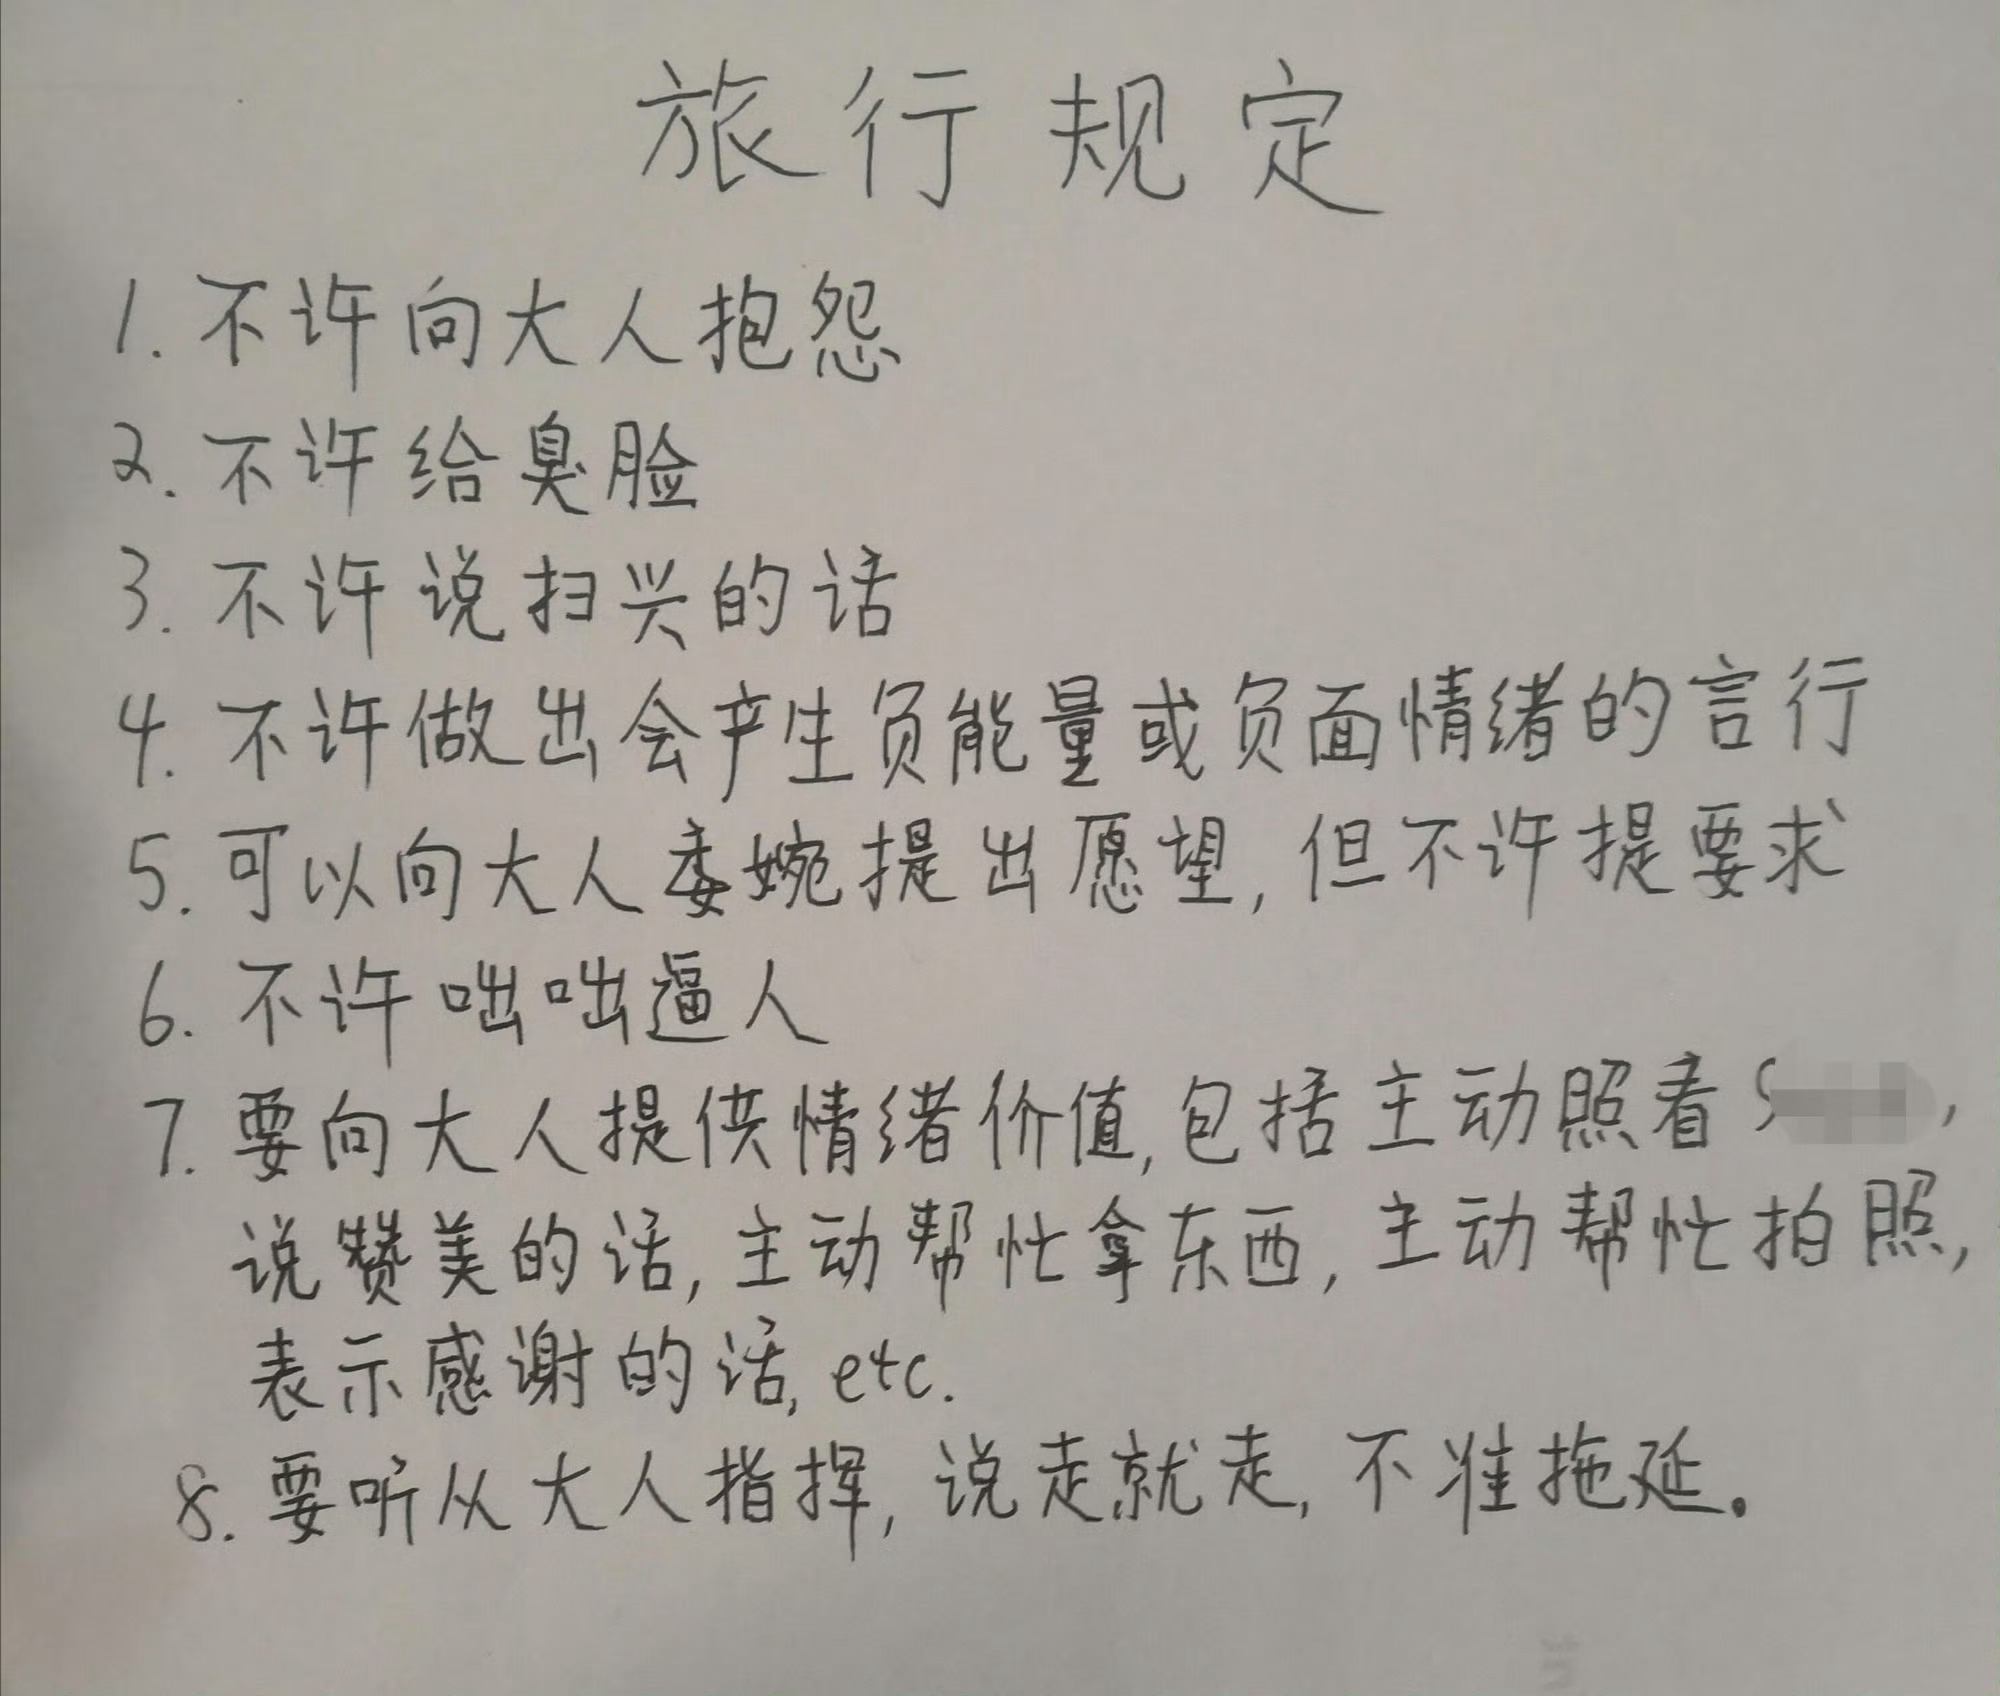 旅行规定
1. 不许向大人抱怨
2. 不许给臭脸
3. 不许说扫兴的话
4. 不许做出会产生负能量或负面情绪的言行
5. 可以向大人委婉提出愿望, 但不许提要求
6. 不许咄咄逼人
7. 要向大人提供情绪价值, 包括主动照看 ,
说赞美的话, 主动帮忙拿东西, 主动帮忙拍照,
表示感谢的话, etc.
8. 要听从大人指挥, 说走就走, 不准拖延。